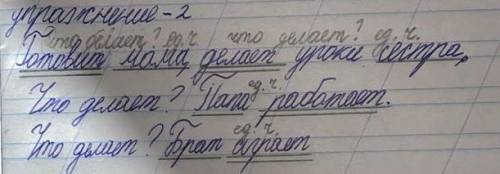 упражнение-2
что делает? ед.ч. что делает? ед.ч.
Готовит мама, делает уроки сестра,
ед.ч.
Что делает? Папа работает.
ед.ч.
Что делает? Брат играет